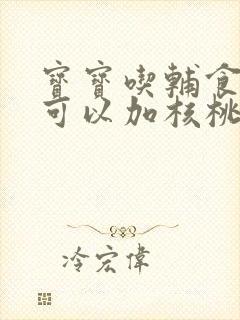 寳寳喫輔食
可以加核桃
冷宏偉